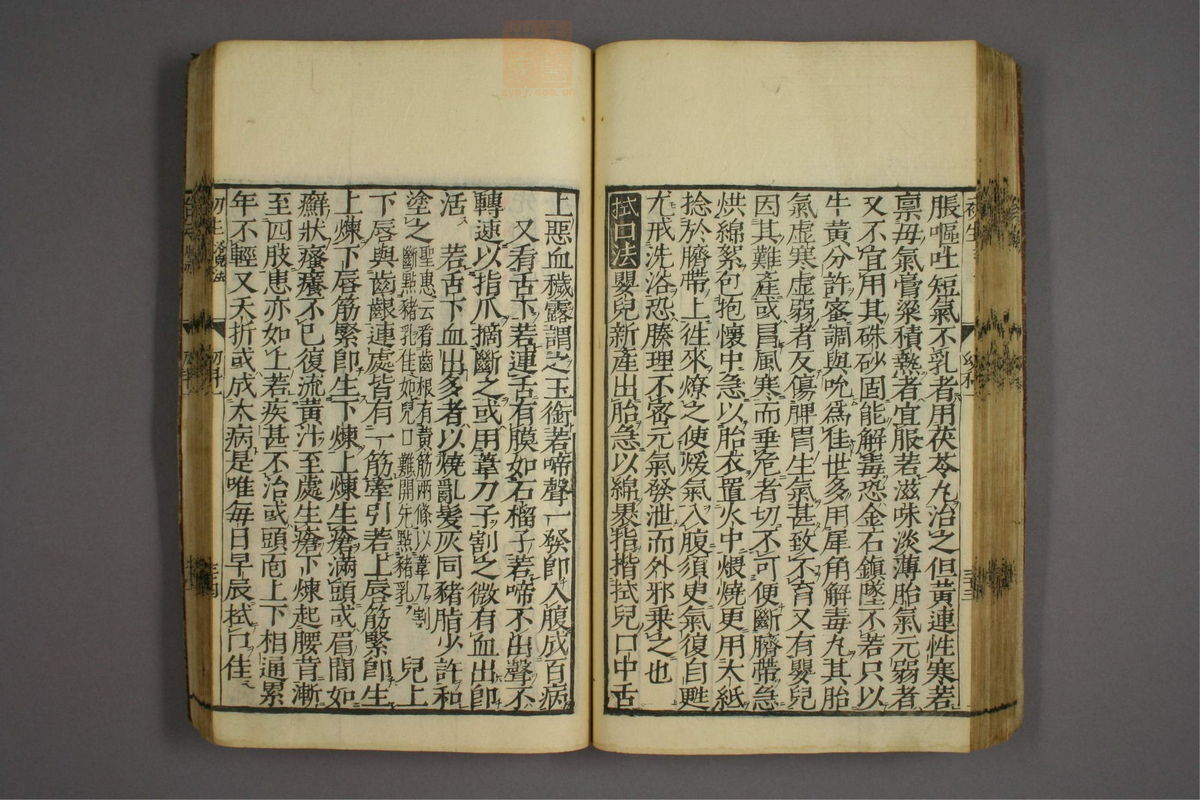 脹嘔吐短氣不乳者用茯苓丸治之但黃連性寒若
稟毋氣膏粱積熱者宜服若滋味淡薄胎氣元弱者
又不宜用其硃砂固能解毒恐金石鎮墜不若只以
牛黃分許蜜調與吮爲佳世多用犀角解毒丸其胎
氣虛寒虛弱者反傷脾胃生氣甚致不育又有嬰兒
因其難產或冒風寒而垂危者切不可便斷臍帶急
烘綿絮包抱懷中急以胎衣置火中煨燒更用大紙
捻於臍帶上徃來燎之使煖氣入腹須臾氣復自甦
尤戒洗浴恐腠理不密元氣發泄而外邪乗之也
拭口法 嬰兒新產出胎急以綿褁指揩拭兒口中舌
上惡血穢露謂之玉銜若啼聲一發卽入腹成百病
又看舌下若連舌有膜如石榴子若啼不出聲不
轉速以指爪摘斷之或用葦刀子割之微有血出卽
活 若舌下血出多者以燒亂髮灰同豬脂少許和
塗之 聖惠云看齒根有黃筋兩條以葦刀割
斷點豬乳佳如兒口難開先點豬乳 兒上
下唇與齒齦連處皆有一筋牽引若上唇筋緊卽生
上煉下唇筋緊卽生下煉上煉生瘡滿頭或眉間如
癬狀瘙癢不已復流黃汁至處生瘡下煉起腰背漸
至四肢患亦如上若疾甚不治或頭面上下相通累
年不輕又夭折或成大病是唯每日早辰拭口佳
初生
幼科一
三十三
初生 浴兒法
三十四